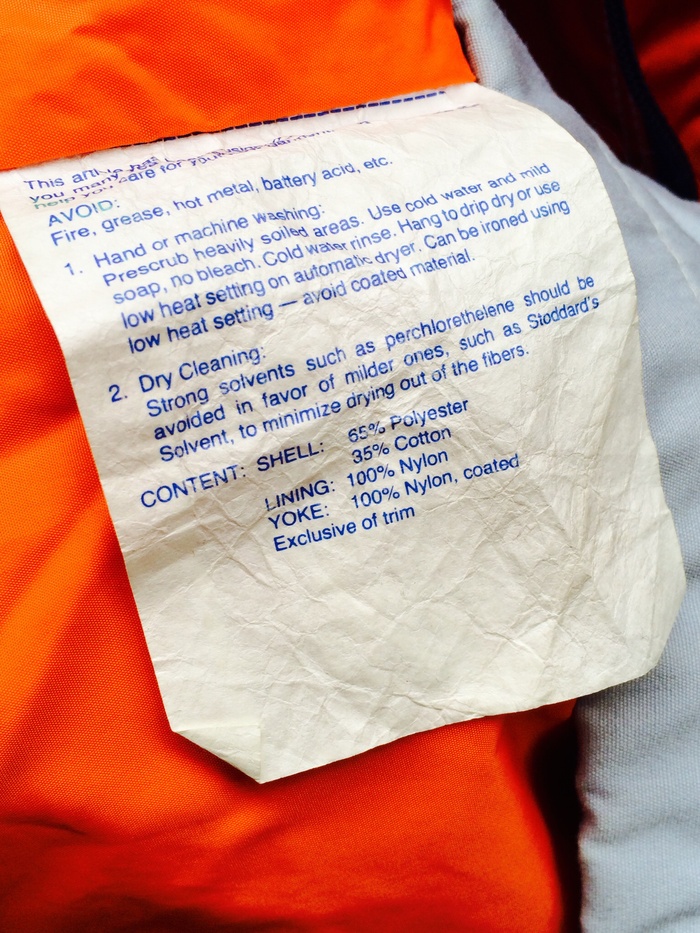 This
you may care for your
help you
AVOID:
Fire, grease, hot metal, battery acid, etc.
1. Hand or machine washing:
Prescrub heavily soiled areas. Use cold water and mild
soap, no bleach. Cold water rinse. Hang to drip dry or use
low heat setting on automatic dryer. Can be ironed using
low heat setting — avoid coated material.
2. Dry Cleaning:
Strong solvents such as perchlorethelene should be
avoided in favor of milder ones, such as Stoddard's
Solvent, to minimize drying out of the fibers.
CONTENT: SHELL: 65% Polyester
35% Cotton
LINING: 100% Nylon
YOKE: 100% Nylon, coated
Exclusive of trim